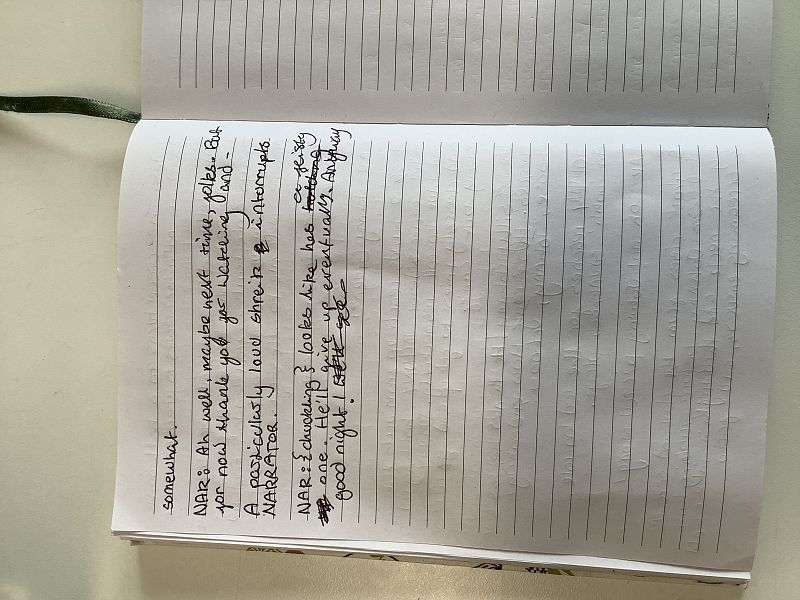 somewhat.
NAR: Ah well, maybe next time, folks. But
for now thank you for watching and -
A particularly loud shreik interrupts
NARRATOR.
NAR: {chuckling} looks like has a feisty
one. He'll give up eventually. Anyway
good night!